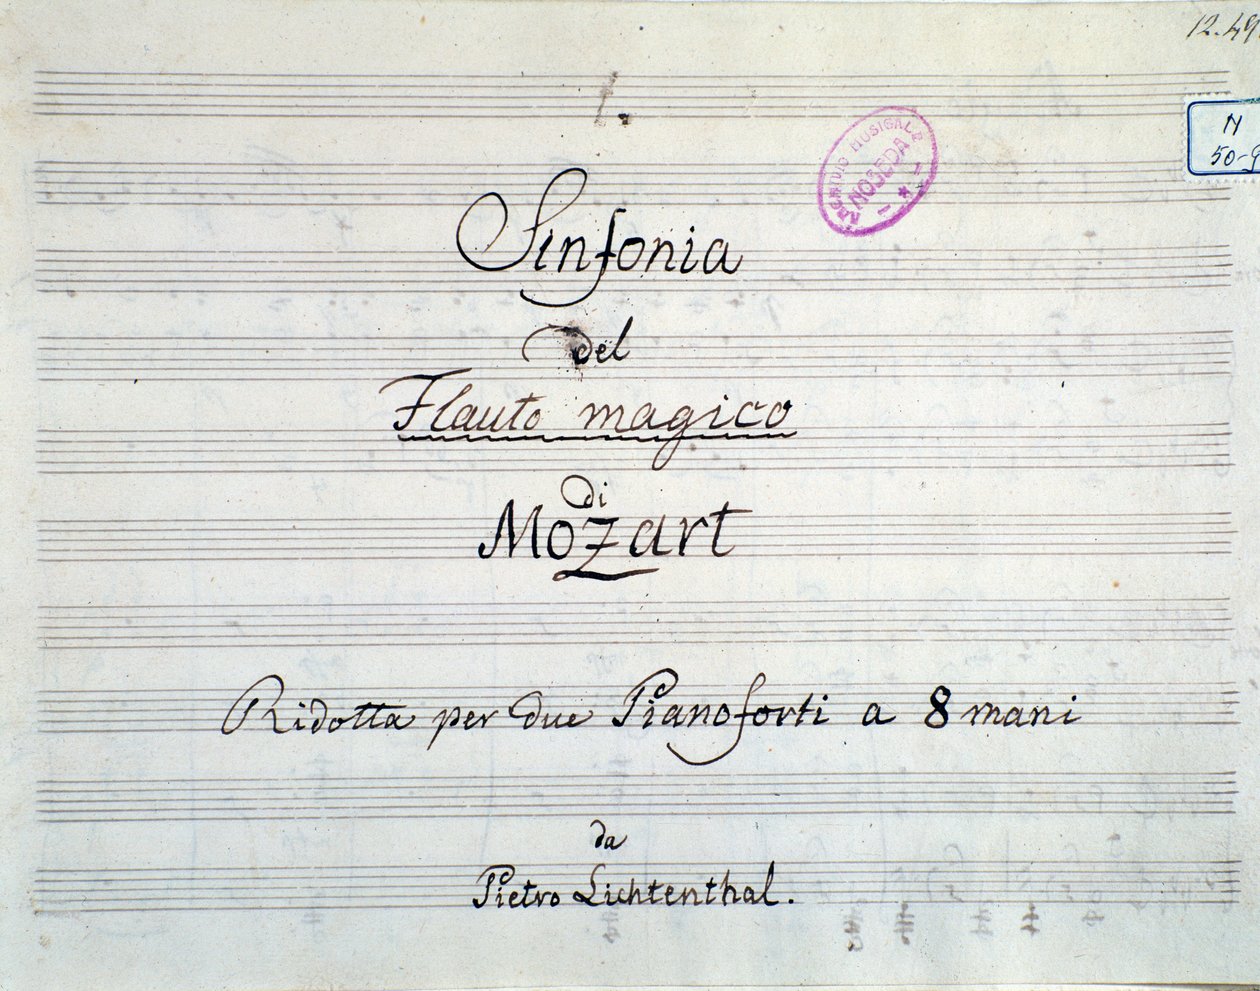 12.49
1.
ARCHIVIO MUSICALE
NOSEDA
N
50-9
Sinfonia
del
Flauto magico
di
Mozart
Ridotta per due Pianoforti a 8 mani
da
Pietro Lichtenthal.